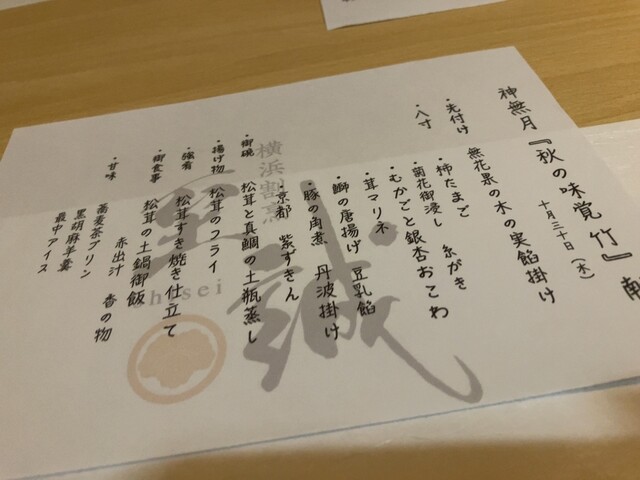 神無月『秋の味覚 竹』
十月三十日(木)
・先付け 無花果の木の実餡掛け
・八寸
・柿たまご 糸がき
・菊花御浸し
・むかごと銀杏おこわ
・茸マリネ
・鰤の唐揚げ 豆乳餡
・豚の角煮 丹波掛け
・京都 紫ずきん
・御碗 松茸と真鯛の土瓶蒸し
・揚げ物 松茸のフライ
・強肴 松茸すき焼き仕立て
・御食事 松茸の土鍋御飯
赤出汁 香の物
・甘味 蕎麦茶プリン
黒胡麻羊羹
最中アイス
横浜割烹
至誠
shisei